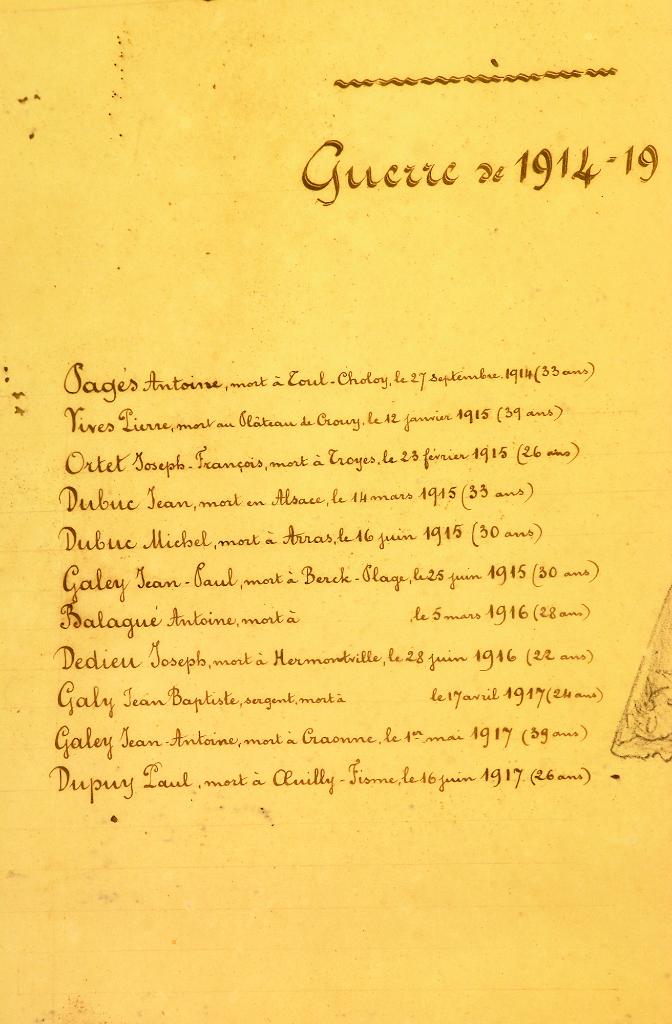 Guerre de 1914-19
Pagés Antoine, mort à Toul-Choloy, le 27 septembre 1914 (33 ans)
Vives Pierre, mort au Plâteau de Crouy, le 12 janvier 1915 (39 ans)
Ortet Joseph-François, mort à Troyes, le 23 février 1915 (26 ans)
Dubuc Jean, mort en Alsace, le 14 mars 1915 (33 ans)
Dubuc Michel, mort à Arras, le 16 juin 1915 (30 ans)
Galey Jean-Paul, mort à Berck-Plage, le 25 juin 1915 (30 ans)
Balagué Antoine, mort à , le 5 mars 1916 (28 ans)
Dedieu Joseph, mort à Hermontville, le 28 juin 1916 (22 ans)
Galy Jean Baptiste, sergent, mort à le 17 avril 1917 (24 ans)
Galey Jean-Antoine, mort à Craonne, le 1er mai 1917 (39 ans)
Dupuy Paul, mort à Œuilly-Fisme, le 16 juin 1917 (26 ans)